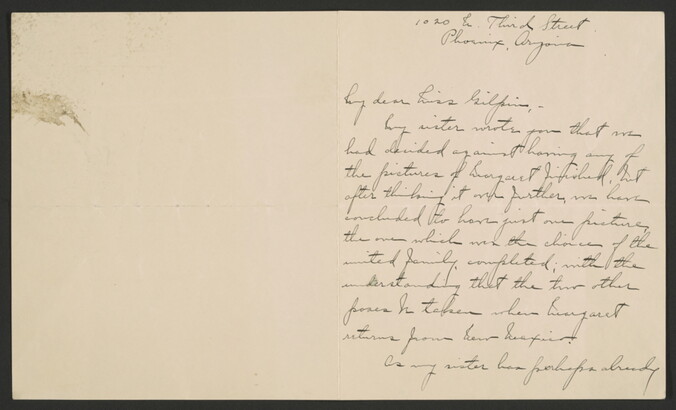 1020 N. Third Street.
Phoenix, Arizona
My dear Miss Gilpin, -
My sister wrote you that we
had decided against having any of
the pictures of Margaret finished, but
after thinking it over further, we have
concluded to have just one picture,
the one which was the choice of the
united family, completed; with the
understanding that the two other
poses be taken when Margaret
returns from New Mexico.
As my sister has perhaps already